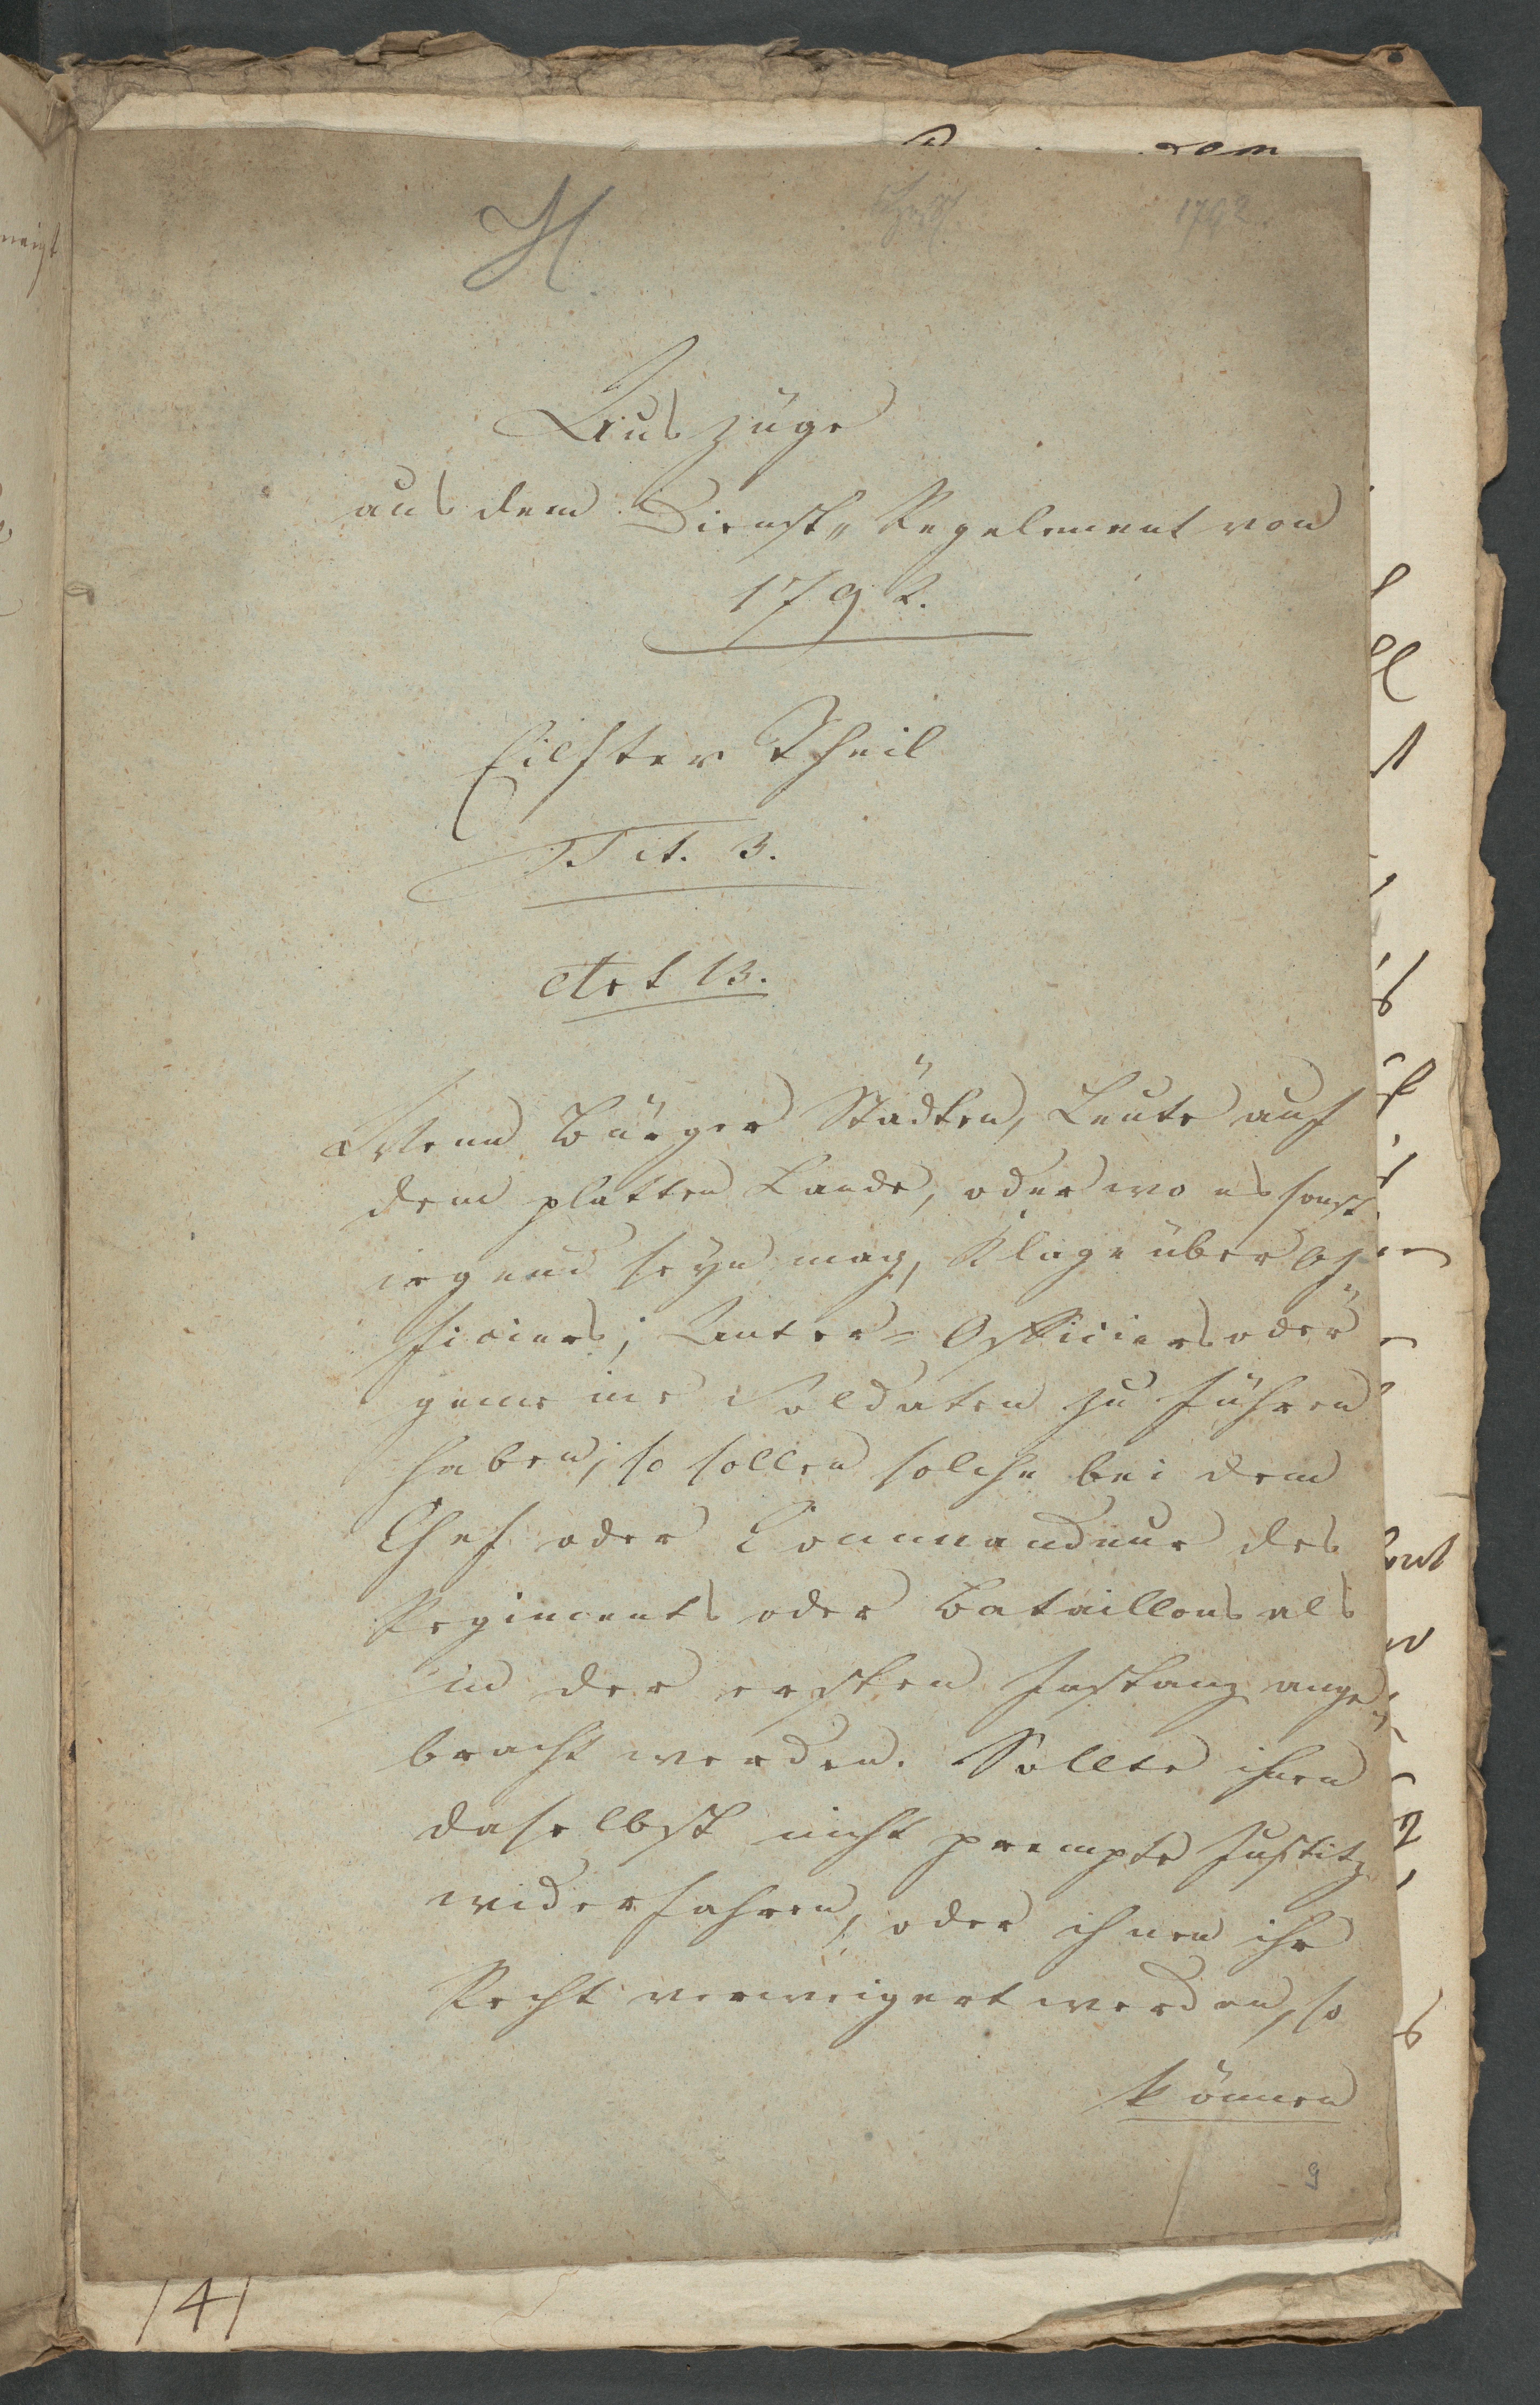 H.
1792
Auszüge
aus dem Dienst„Regelement von
1792.
Eilfter Theil
Tit. 3.
Art 13.
Wenn Bürger Städten, Leute auf
dem platten Lande, oder wo es sonst
irgend seyn mag, Klage über Of„
ficiers, Unter= Officiers oder
gemeine Soldaten zu führen
haben, so sollen solche bei dem
Chef oder Commandeur des
Regiments oder Bataillons als
in der ersten Instanz ange„
bracht werden. Sollte ihnen
daselbst nicht prompte Justitz
widerfahren, oder ihnen ihr
Recht verweigert werden, so
können
9
141